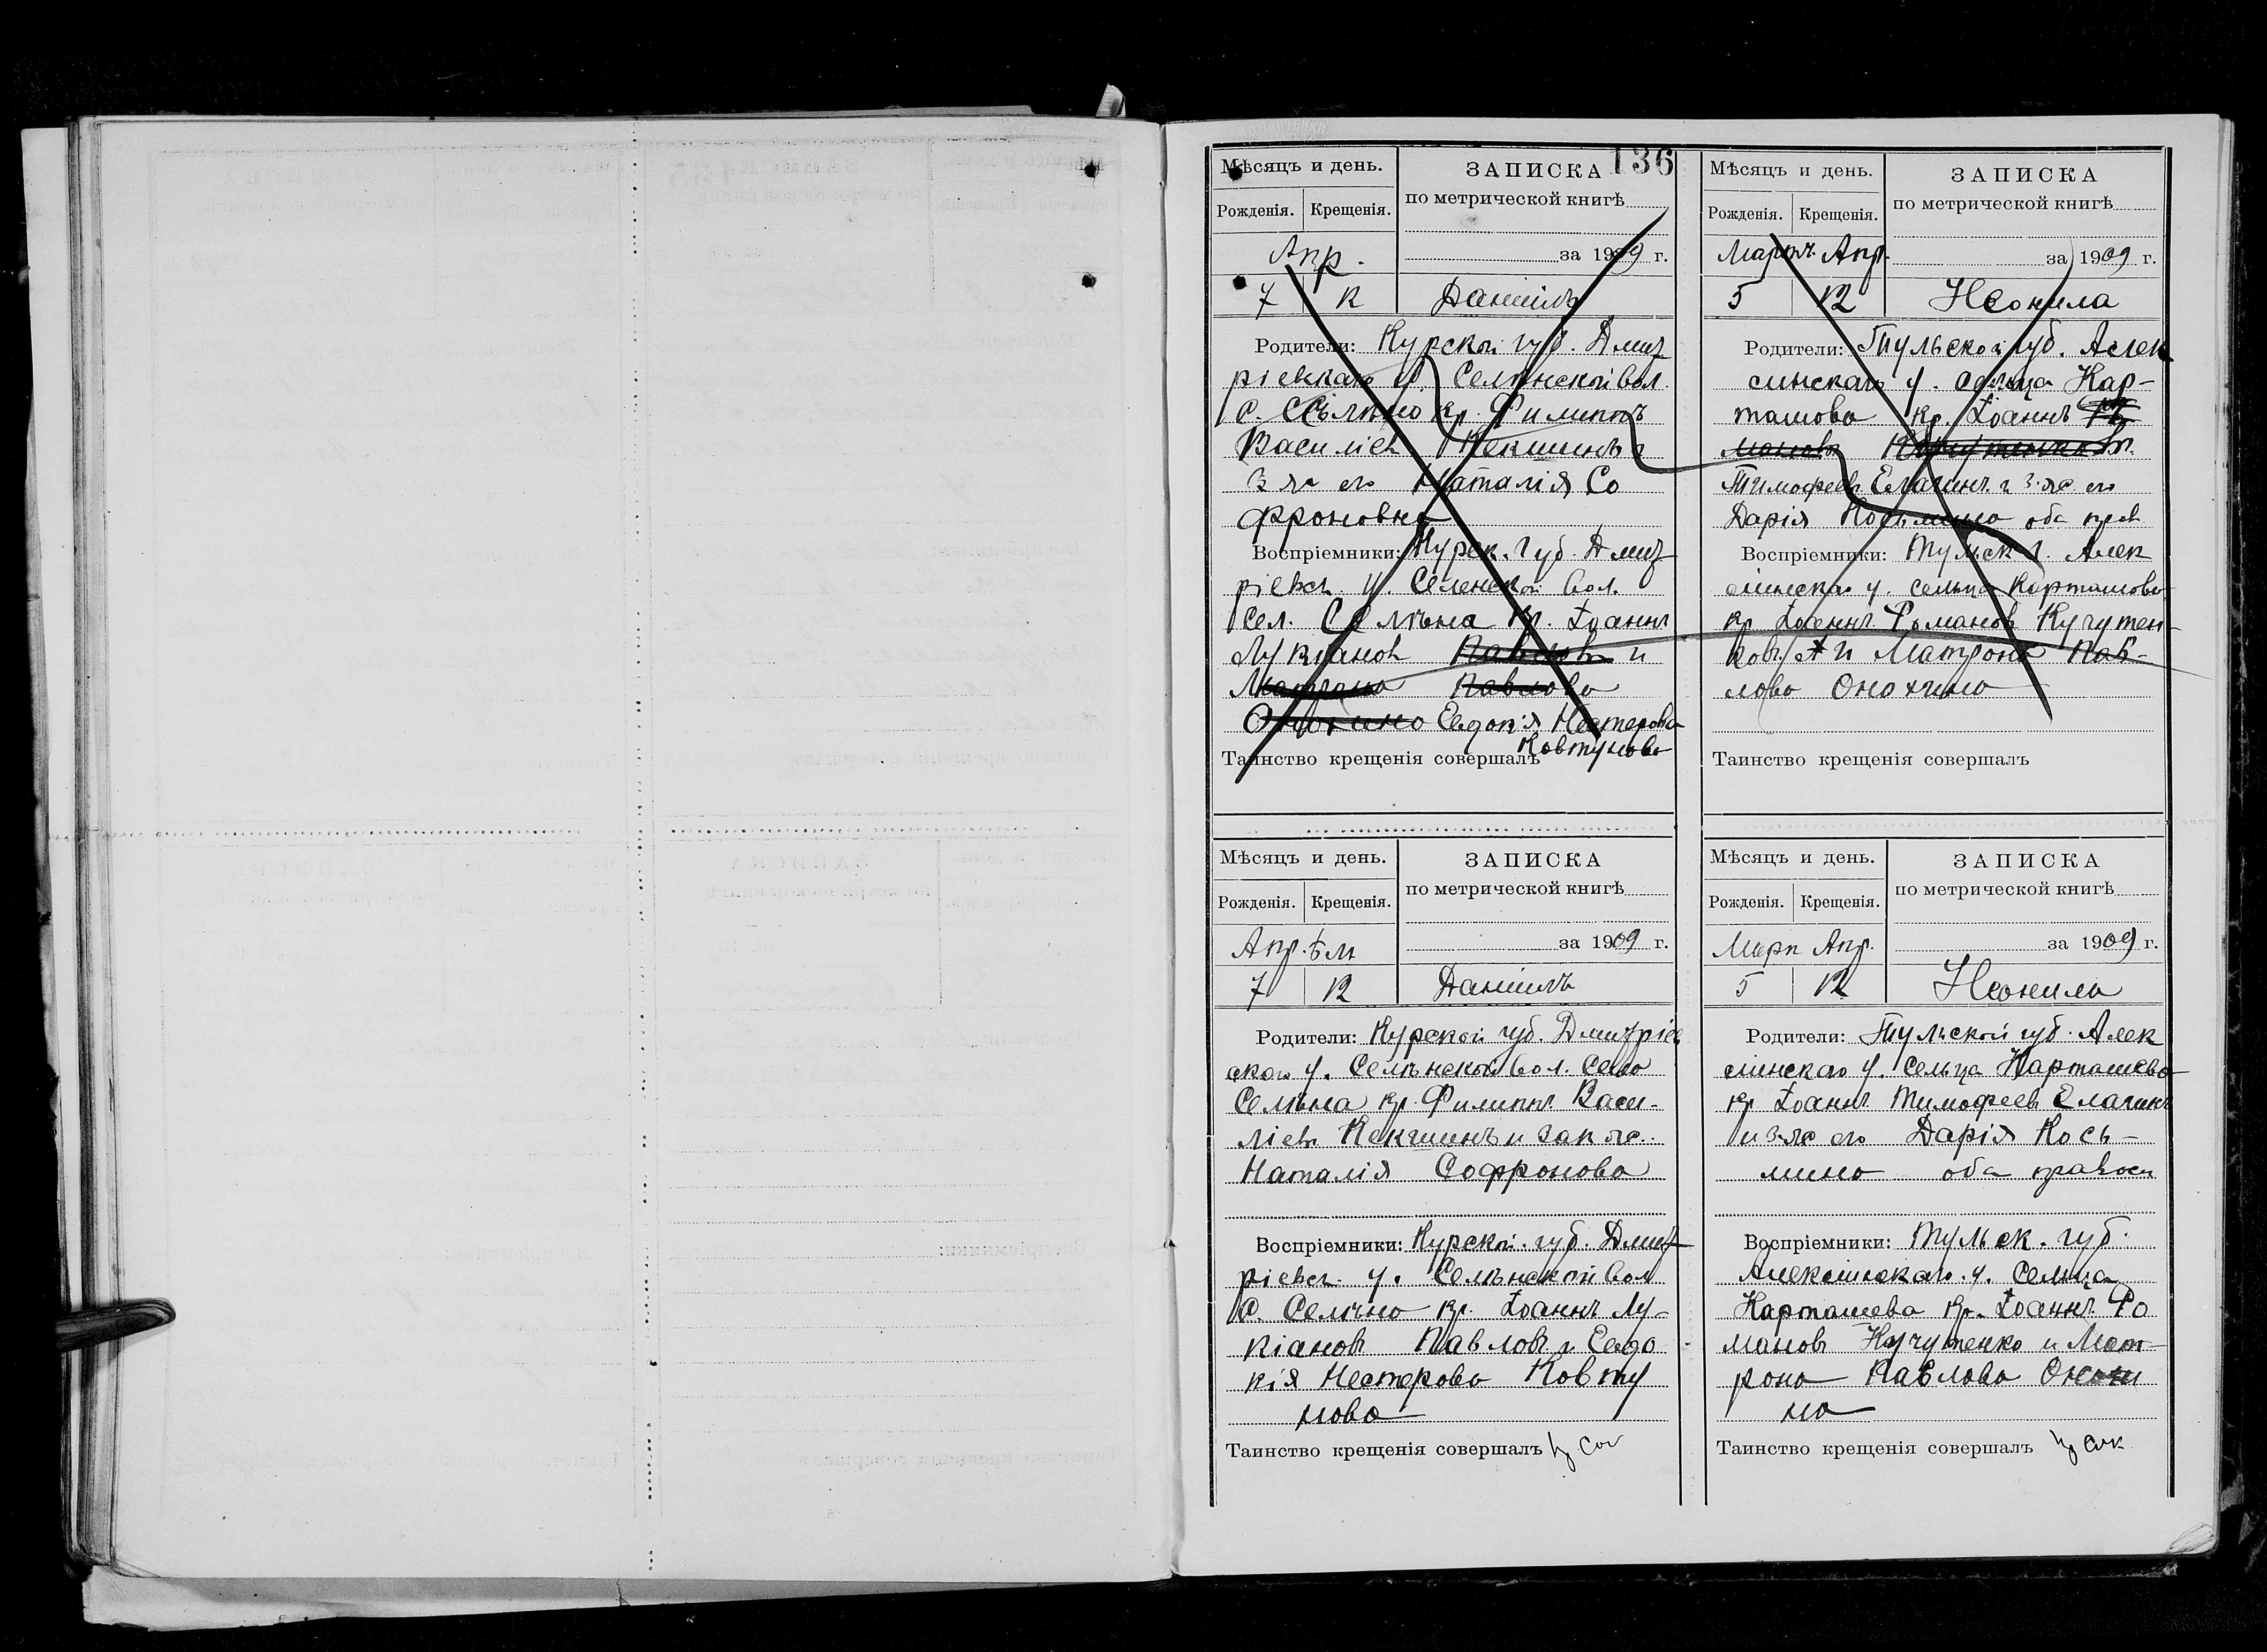 136
Мѣсяцъ и день.
Рожденія. Крещенія.
ЗАПИСКА
по метрической книгѣ
за 1909 г.
Апр.
7 12 Даніилъ
Родители: Курской губ. Дмит
ріевскаго у. Селинской вол.
с. Селино кр. Филиппъ
Василіев Кекшинъ и
з ж его Наталія Со
фроновна
Воспріемники: Курск. губ. Дмит
ріевск. у. Селенской вол.
Сел. Селина кр. Іоаннъ
Лукіанов Павловъ и
Матрона Павлова
Онохина Евдокія Нестерова
Ковтунова
Таинство крещенія совершалъ
Мѣсяцъ и день.
Рожденія. Крещенія.
ЗАПИСКА
по метрической книгѣ
за 1909 г.
Мартъ Апр.
5 12 Неонила
Родители: Тульской губ. Алек
синскаго у. сельца Кар-
ташова кр. Іоаннъ Ро
мановъ
Тимофеевъ Елагинъ и з. ж. его
Дарія Косьмина оба прав
Воспріемники: Тульск г. Алек
синскаго у. сельца Карташова
кр Іоаннъ Романов Кучутен-
ковъ и Матрона Пав-
лова Онохина
Таинство крещенія совершалъ
Мѣсяцъ и день.
Рожденія. Крещенія.
ЗАПИСКА
по метрической книгѣ
за 1909 г.
Апр.
7 12 Даніилъ
Родители: Курской губ. Дмитріев
скаго у. Селинской вол. Село
Селина кр. Филиппъ Васи-
ліевъ Кекшинъ и зак ж.
Наталія Софронова
Воспріемники: Курской. губ. Дмит
ріевск. у. Селинской вол
с. Селино кр. Іоаннъ Лу-
кіановъ Павловъ и Евдо
кія Нестерова Ковту
нова
Таинство крещенія совершалъ
Мѣсяцъ и день.
Рожденія. Крещенія.
ЗАПИСКА
по метрической книгѣ
за 1909 г.
Март Апр.
5 12 Неонила
Родители: Тульской губ. Алек
синскаго у. Сельца Карташева
кр Іоаннъ Тимофеев Елагинъ
и з-ж его Дарія Кось-
мина оба правосл
Воспріемники: Тульск. губ.
Алексинскаго. у. Сельца
Карташева кр. Іоаннъ Ро
мановъ Кучутенко и Мат-
рона Павлова Онохи
на
Таинство крещенія совершалъ